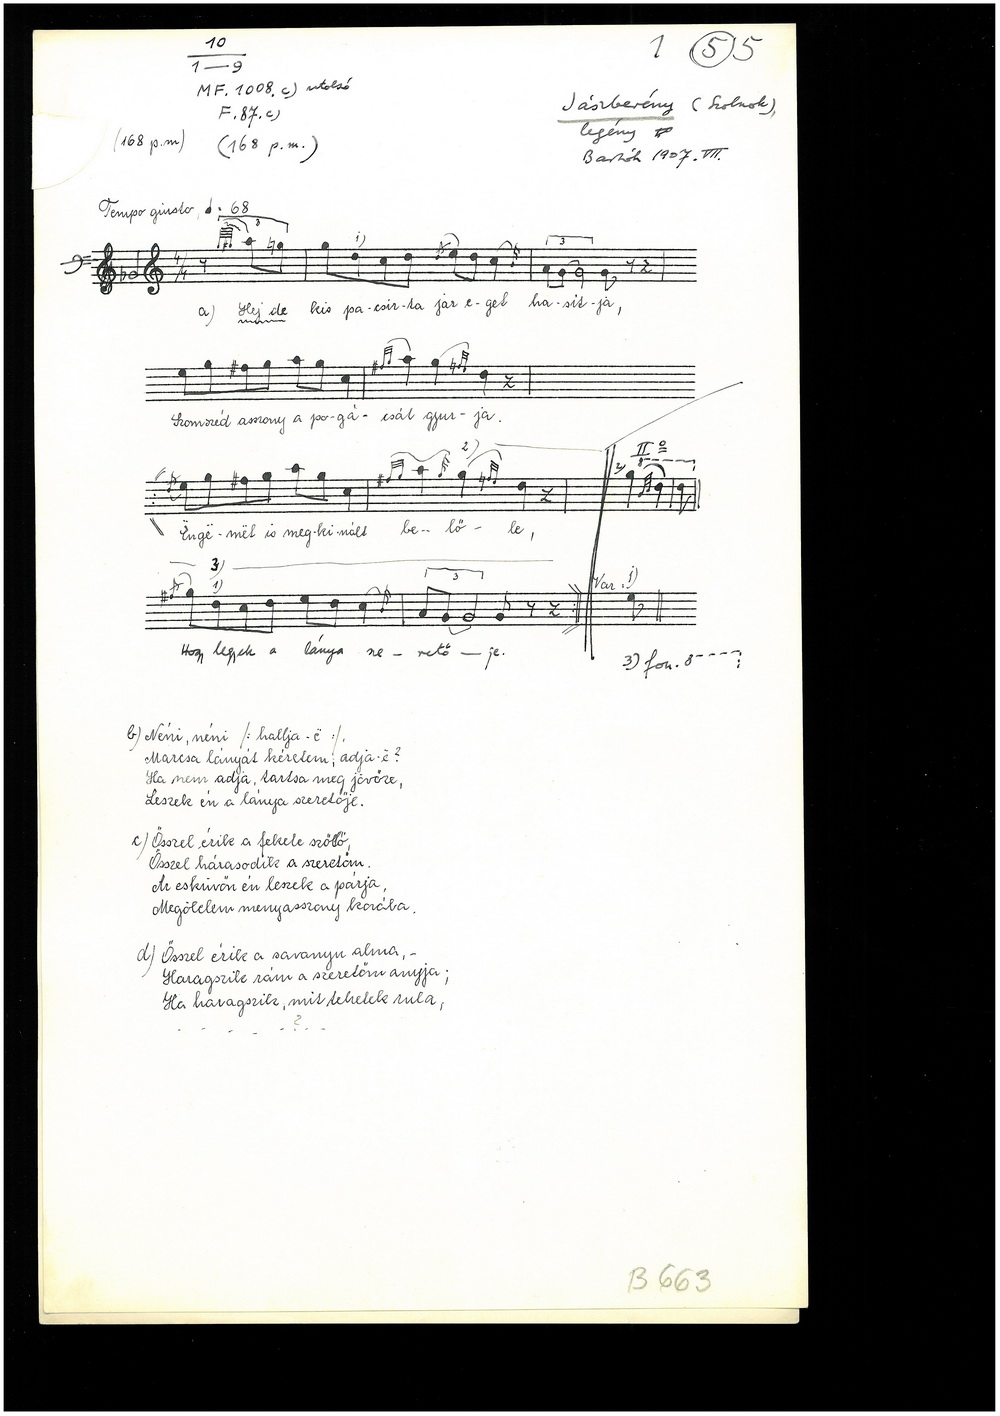 10
1—9
MF. 1008. c) utolsó
F. 87. c)
(168 p.m) (168 p.m.)
1 (5) 5
Jászberény (Szolnok),
legény
Bartók 1907. VII.
Tempo giusto, ♩. 68
3 3
1) 3
a) Hej de kis pa-csir-ta jár e-get ha-sit-ja,
Szomszéd asszony a po-gá- csát gyur-ja.
2) II 8
Ëngë-mët is meg-ki-nált be-- lő- le,
3)
1) 3 Var. 1)
Hogy legyek a lánya sze- rető — je.
3) fon. 8
b) Néni, néni /: hallja-ë :/.
Marcsa lányát kéretem, adja-ë?
Ha nem adja, tartsa meg jövőre,
Leszek én a lánya szeretője.
c) Ősszel érik a fekete szőllő,
Ősszel házasodik a szeretőm.
Az esküvőn én leszek a párja,
Megölelem menyasszony korába.
d) Ősszel érik a savanyu alma,-
Haragszik rám a szeretőm anyja;
Ha haragszik, mit tehetek rula,
- - - - - ? - -
B 663